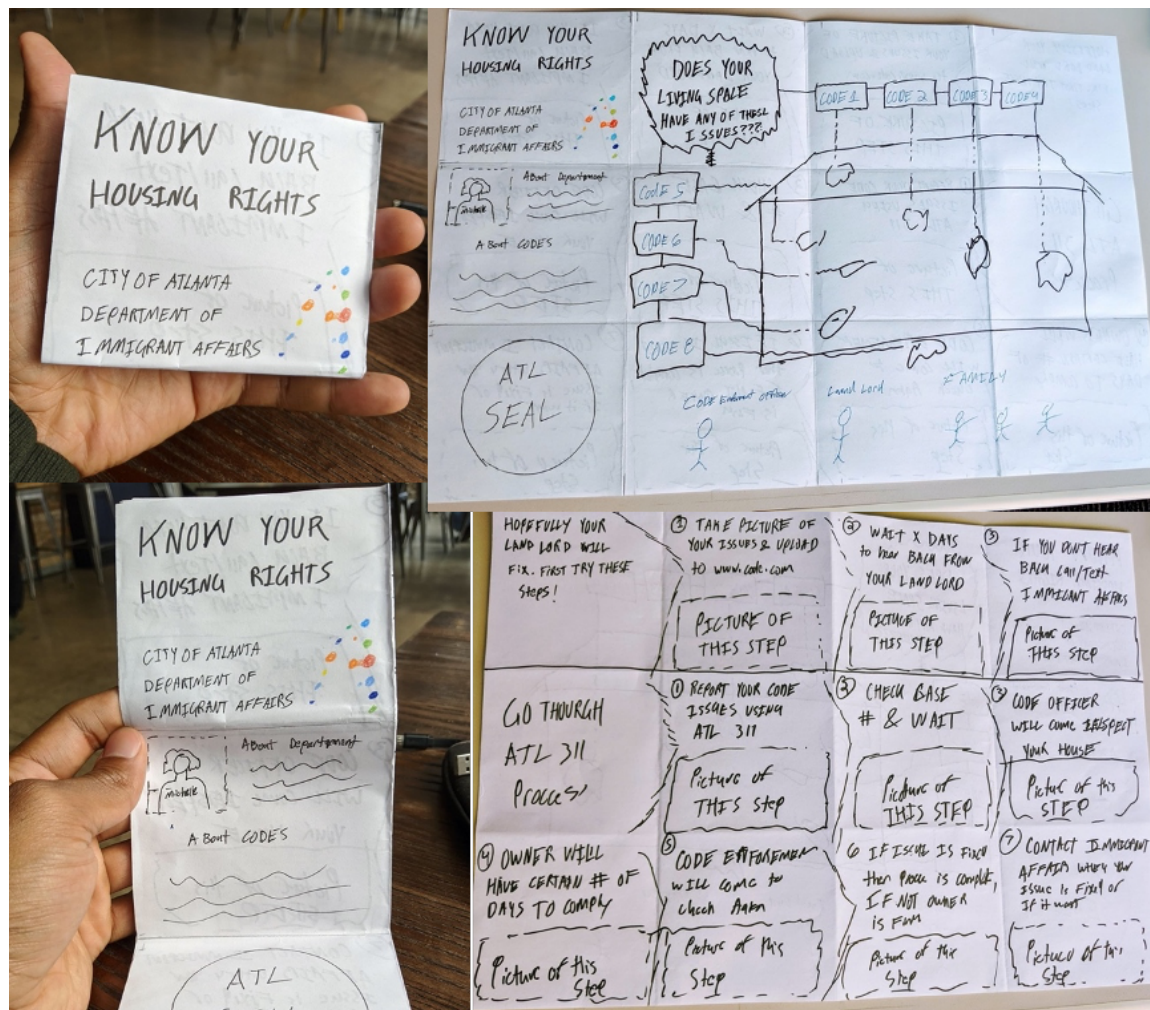 KNOW YOUR
HOUSING RIGHTS
CITY OF ATLANTA
DEPARTMENT OF
IMMIGRANT AFFAIRS
KNOW YOUR
HOUSING RIGHTS
CITY OF ATLANTA
DEPARTMENT OF
IMMIGRANT AFFAIRS
About Department
Michelle
ABout CODES
ATL
SEAL
DOES YOUR
LIVING SPACE
HAVE ANY OF THESE
ISSUES???
CODE 1
CODE 2
CODE 3
CODE 4
CODE 5
CODE 6
CODE 7
CODE 8
CODE officer
Land Lord
FAMILY
KNOW YOUR
HOUSING RIGHTS
CITY OF ATLANTA
DEPARTMENT OF
IMMIGRANT AFFAIRS
About Department
Michelle
ABout CODES
ATL
HOPEFULLY YOUR
LAND LORD WILL
FIX. FIRST TRY THESE
Steps!
① TAKE PICTURE OF
YOUR ISSUES & UPLOAD
to www.code.com
PICTURE OF
THIS STEP
② WAIT X DAYS
to hear BACK FROM
YOUR LAND LORD
PICTURE OF
THIS STEP
③ IF YOU DON'T HEAR
BACK Call/Text
IMMIGRANT AFFAIRS
Picture of
THIS STEP
GO THOURGH
ATL 311
Process
① REPORT YOUR CODE
ISSUES USING
ATL 311
Picture of
THIS Step
③ CHECK BASE
# & WAIT
Picture of
THIS STEP
③ CODE OFFICER
WILL COME INSPECT
YOUR HOUSE
Picture of this
STEP
④ OWNER WILL
HAVE CERTAIN # OF
DAYS TO COMPLY
Picture of this
Step
⑤ CODE ENFORCEMEN
WILL COME to
check Again
Picture of this
Step
6 IF ISSUE IS FIXED
then process is complete,
IF NOT OWNER
IS
Picture of this
Step
⑦ CONTACT IMMIGRANT
AFFAIR when your
Issue is Fixed or
If it not
Picture of this
Step